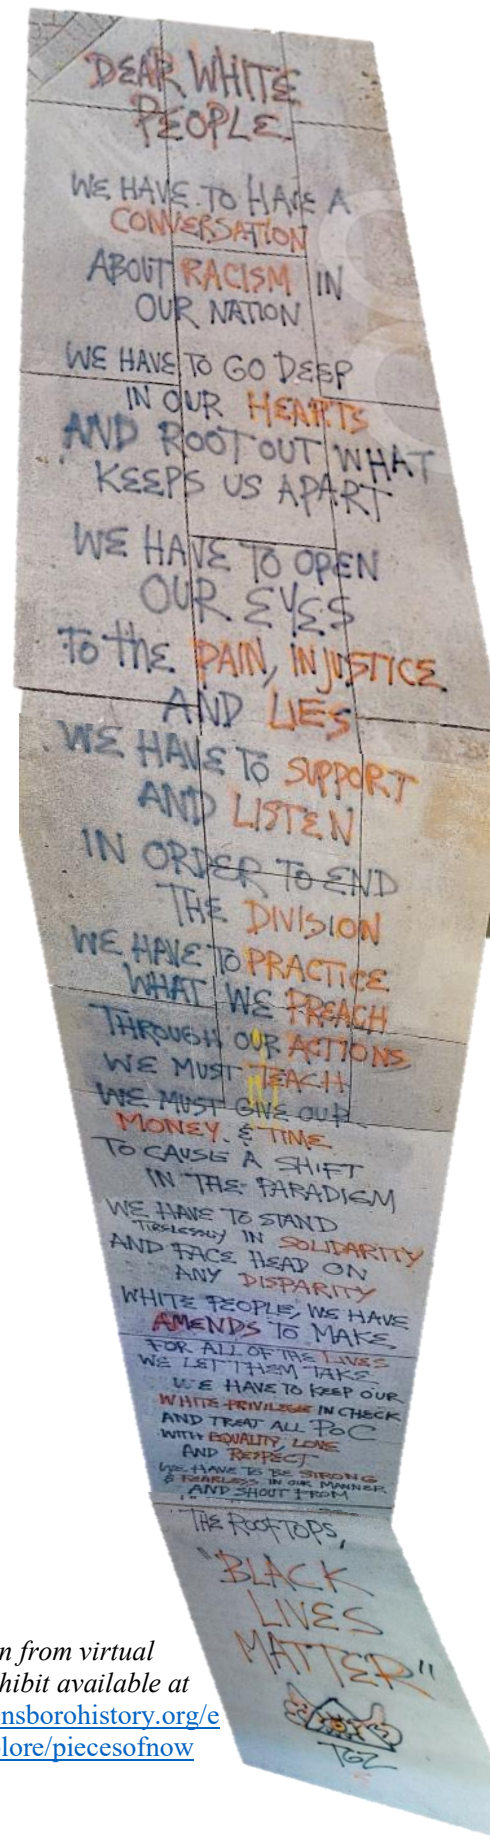 DEAR WHITE
PEOPLE
WE HAVE TO HAVE A
CONVERSATION
ABOUT RACISM IN
OUR NATION
WE HAVE TO GO DEEP
IN OUR HEARTS
AND ROOT OUT WHAT
KEEPS US APART
WE HAVE TO OPEN
OUR EYES
TO the PAIN, INJUSTICE
AND LIES
WE HAVE TO SUPPORT
AND LISTEN
IN ORDER TO END
THE DIVISION
WE HAVE TO PRACTICE
WHAT WE PREACH
THROUGH OUR ACTIONS
WE MUST TEACH
WE MUST GIVE OUR
MONEY & TIME
TO CAUSE A SHIFT
IN THE PARADIGM
WE HAVE TO STAND
TIRELESSLY IN SOLIDARITY
AND FACE HEAD ON
ANY DISPARITY
WHITE PEOPLE, WE HAVE
AMENDS TO MAKE
FOR ALL OF THE LIVES
WE LET THEM TAKE
WE HAVE TO KEEP OUR
WHITE PRIVILEGE IN CHECK
AND TREAT ALL POC
WITH EQUALITY, LOVE
AND RESPECT
WE HAVE TO BE STRONG
& FEARLESS IN OUR MANNER
AND SHOUT FROM
THE ROOFTOPS,
"BLACK
LIVES
MATTER"
n from virtual
hibit available at
nsborohistory.org/e
lore/piecesofnow